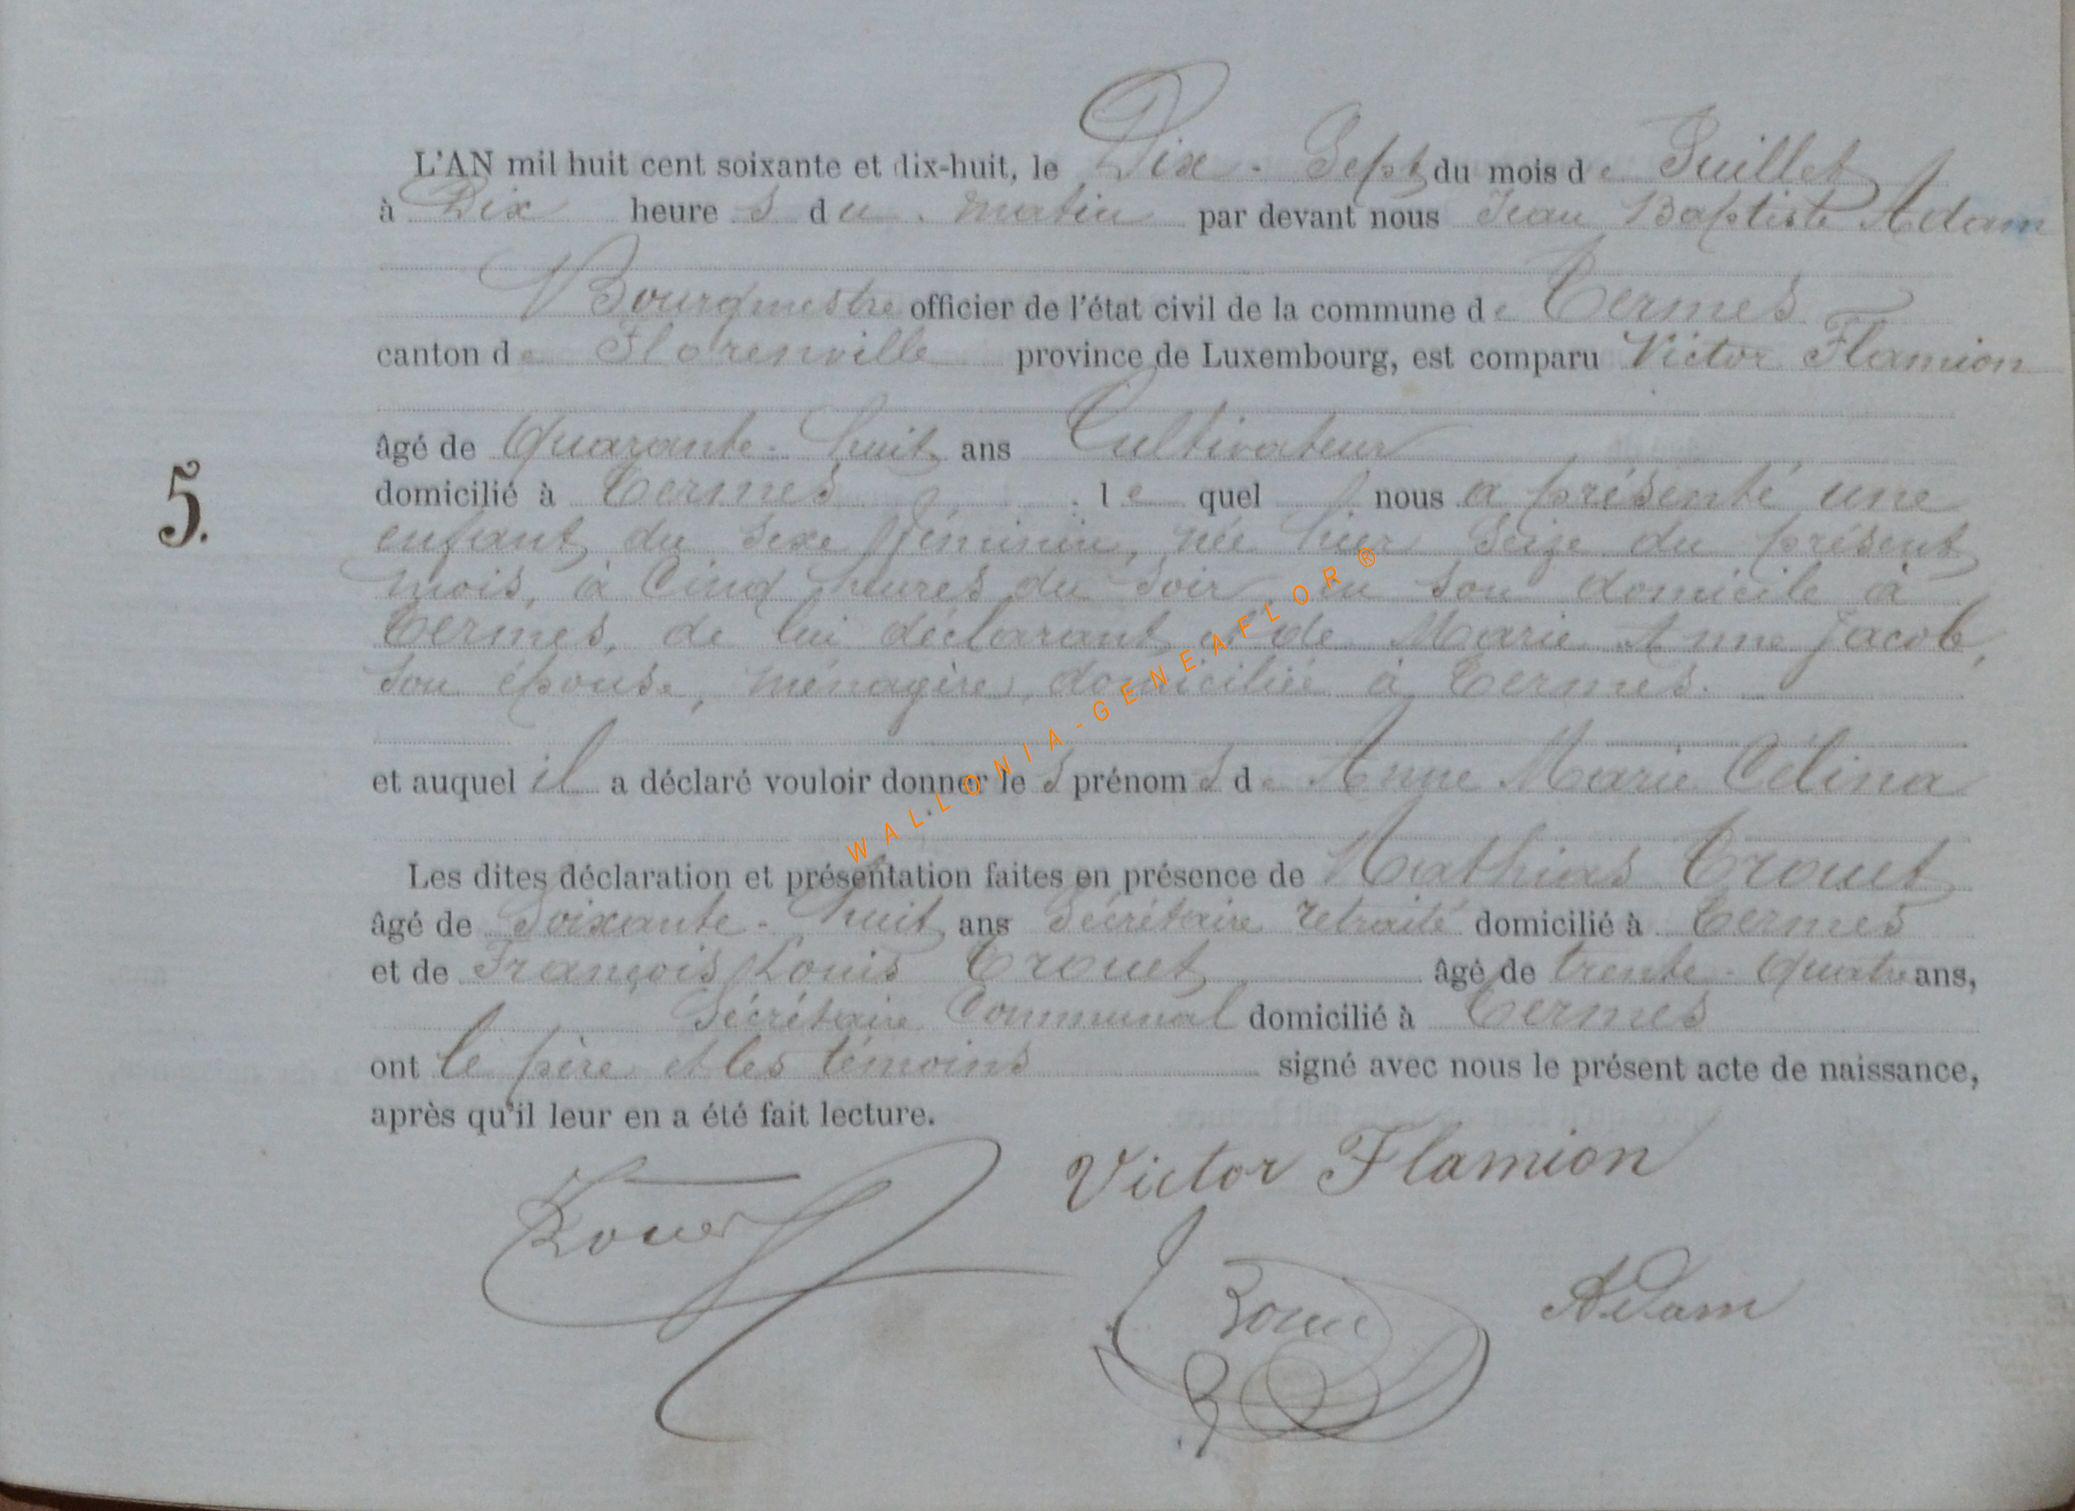 L'AN mil huit cent soixante et dix-huit, le Dix-Sept du mois de Juillet
à Dix heures du matin par devant nous Jean Baptiste Adam
Bourgmestre officier de l'état civil de la commune de Termes
canton de Florenville province de Luxembourg, est comparu Victor Flamion
âgé de Quarante-huit ans Cultivateur
domicilié à Termes lequel nous a présenté une
5.
enfant du sexe féminin, née hier Seize du présent
mois, à Cinq heures du soir en son domicile à
Termes, de lui déclarant et de Marie Anne Jacob,
son épouse, ménagère, domiciliée à Termes.
et auquel il a déclaré vouloir donner les prénoms de Anne Marie Célina
WALLONIA-GENEAFLOR®
Les dites déclaration et présentation faites en présence de Mathias Trouet
âgé de Soixante-huit ans Sécrétaire retraité domicilié à Termes
et de François Louis Trouet âgé de trente-quatre ans,
Sécrétaire Communal domicilié à Termes
ont le père et les témoins signé avec nous le présent acte de naissance,
après qu'il leur en a été fait lecture.
Victor Flamion
Trouet
Adam